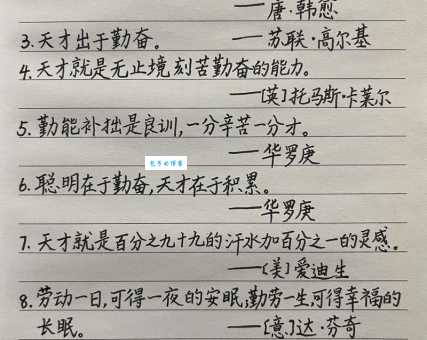 ——唐·韩愈
3.天才出于勤奋。 ——苏联·高尔基
4.天才就是无止境刻苦勤奋的能力。
——[英]托马斯·卡莱尔
5.勤能补拙是良训,一分辛苦一分才。
——华罗庚
6.聪明在于勤奋,天才在于积累。
——华罗庚
7.天才就是百分之九十九的汗水加百分之一的灵感。
——[美]爱迪生
8.劳动一日,可得一夜的安眠,勤劳一生,可得幸福的
长眠。 ——[意]达·芬奇